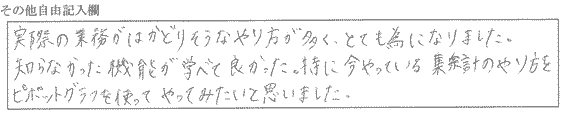 その他自由記入欄
実際の業務がはかどりそうなやり方が多く、とても為になりました。
知らなかった機能が学べて良かった。特に今やっている集計のやり方を
ピボットグラフを使ってやってみたいと思いました。